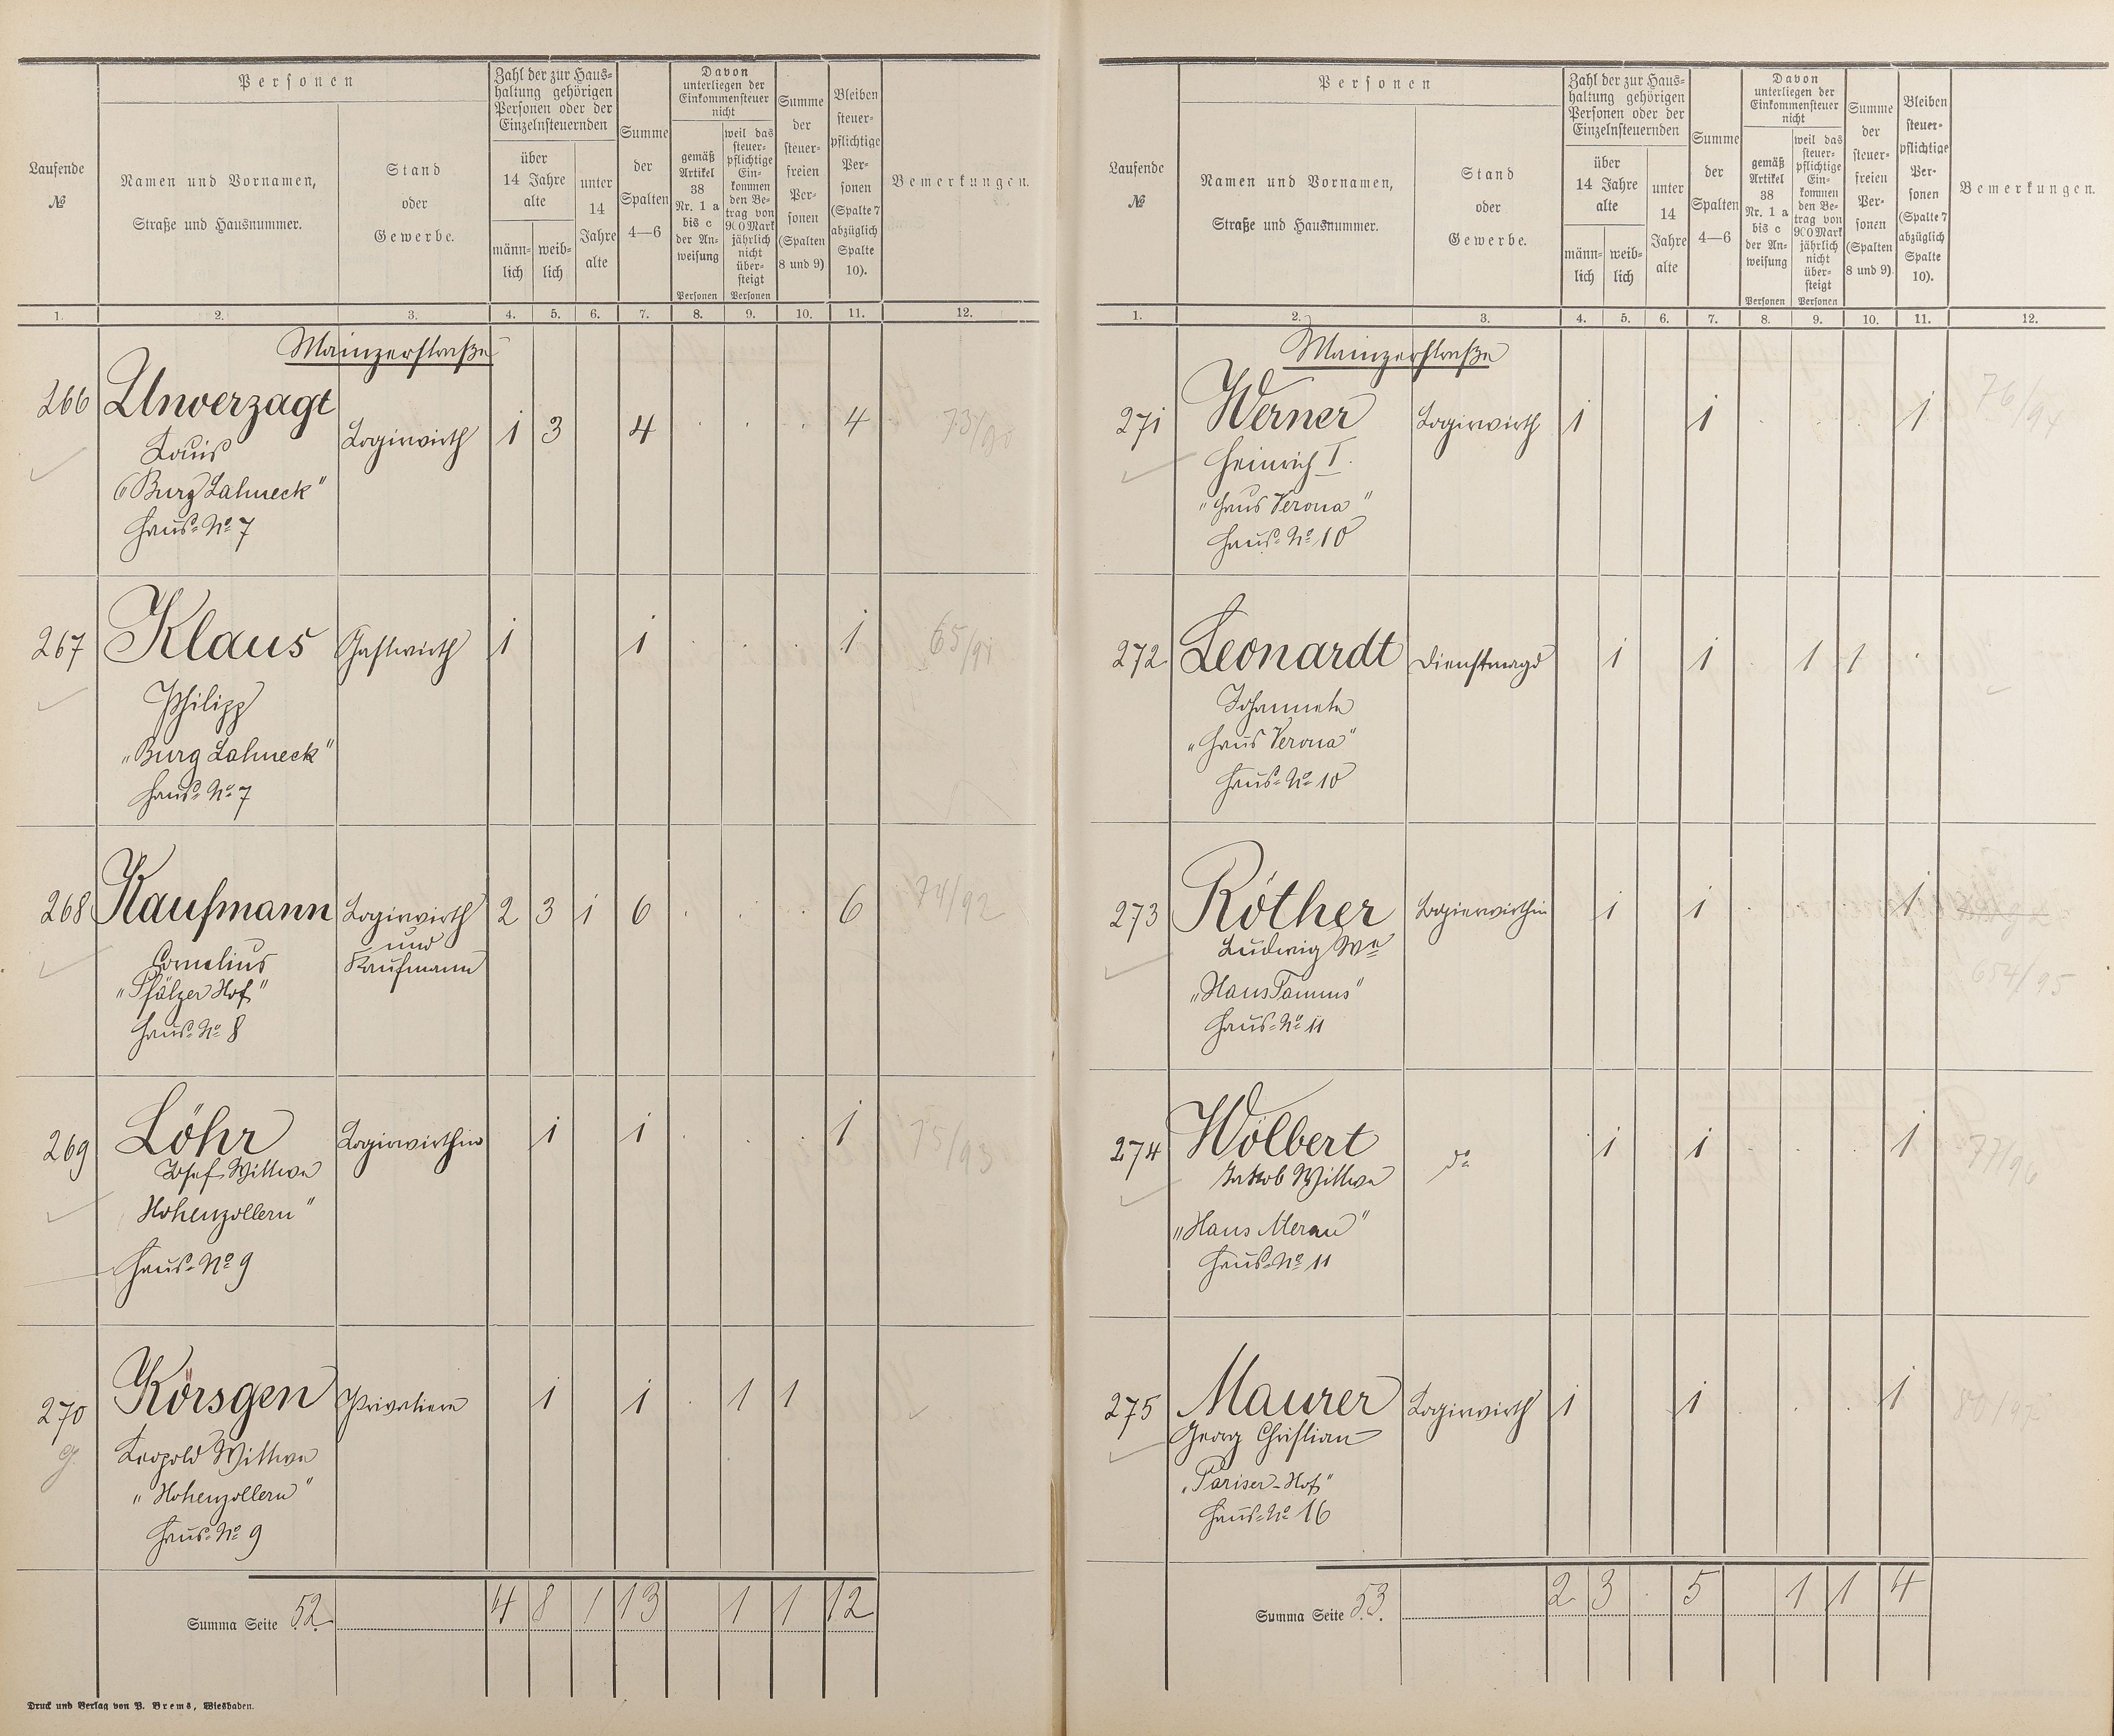 Personen
Laufende
№
Namen und Vornamen,
Straße und Hausnummer.
Stand
oder
Gewerbe.
Zahl der zur Haus-
haltung gehörigen
Personen oder der
Einzelnsteuernden
über
14 Jahre
alte
männ-
lich
weib-
lich
unter
14
Jahre
alte
Summe
der
Spalten
4—6
Davon
unterliegen der
Einkommensteuer
nicht
gemäß
Artikel
38
Nr. 1 a
bis c
der An-
weisung
Personen
weil das
steuer-
pflichtige
Ein-
kommen
den Be-
trag von
900 Mark
jährlich
nicht
über-
steigt
Personen
Summe
der
steuer-
freien
Per-
sonen
(Spalten
8 und 9)
Bleiben
steuer-
pflichtige
Per-
sonen
(Spalte 7
abzüglich
Spalte
10).
Bemerkungen.
1. 2. 3. 4. 5. 6. 7. 8. 9. 10. 11. 12.
Mainzerstraße
266 Unverzagt Logirwirth 1 3 4 . . . 4 73/90
Louis
"Burg Lahneck"
Haus-№ 7
267 Klaus Gastwirth 1 1 . . . 1 65/91
Philipp
"Burg Lahneck"
Haus-№ 7
268 Kaufmann Logirwirth 2 3 1 6 . . . 6 74/92
und
Kaufmann
Cornelius
"Pfälzer Hof"
Haus-№ 8
269 Löhr Logirwirthin 1 1 . . . 1 75/93
Josef Wittwe
Hohenzollern"
Haus-№ 9
270 Körsgen Privatiere 1 1 . 1 1
Leopold Wittwe
"Hohenzollern"
Haus-№ 9
Summa Seite 52. 4 8 1 13 1 1 12
Druck und Verlag von P. Brems, Wiesbaden.
Personen
Laufende
№
Namen und Vornamen,
Straße und Hausnummer.
Stand
oder
Gewerbe.
Zahl der zur Haus-
haltung gehörigen
Personen oder der
Einzelnsteuernden
über
14 Jahre
alte
männ-
lich
weib-
lich
unter
14
Jahre
alte
Summe
der
Spalten
4—6
Davon
unterliegen der
Einkommensteuer
nicht
gemäß
Artikel
38
Nr. 1 a
bis c
der An-
weisung
Personen
weil das
steuer-
pflichtige
Ein-
kommen
den Be-
trag von
900 Mark
jährlich
nicht
über-
steigt
Personen
Summe
der
steuer-
freien
Per-
sonen
(Spalten
8 und 9)
Bleiben
steuer-
pflichtige
Per-
sonen
(Spalte 7
abzüglich
Spalte
10).
Bemerkungen.
1. 2. 3. 4. 5. 6. 7. 8. 9. 10. 11. 12.
Mainzerstraße
271 Werner Logirwirth 1 1 . . . 1 76/94
Heinrich I.
"Haus Verona"
Haus-№ 10
272 Leonardt Dienstmagd 1 1 . 1 1 .
Johannete
"Haus Verona"
Haus-№ 10
273 Röther Logierwirthin 1 1 . . . 1
Ludwig We 654/95
"Haus Taunus"
Haus-№ 11
274 Wölbert do 1 1 . . . 1 77/96
Jakob Wittwe
"Haus Meran"
Haus-№ 11
275 Maurer Logirwirth 1 1 . . . 1 80/97
Georg Christian
"Pariser-Hof"
Haus-№ 16
Summa Seite 53. 2 3 . 5 1 1 4